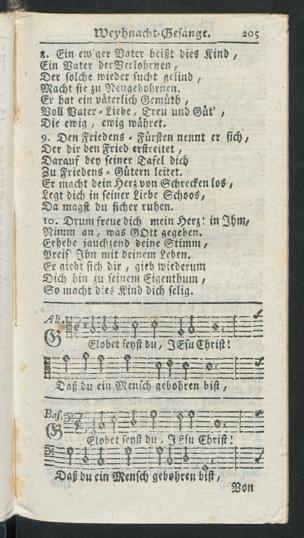 Weyhnacht-Gesänge. 205
8. Ein ew'ger Vater heißt dies Kind,
Ein Vater der Verlohrnen,
Der solche wieder sucht gelind,
Macht sie zu Neugebohrnen.
Er hat ein väterlich Gemüth,
Voll Vater-Liebe, Treu und Güt',
Die ewig, ewig währet.
9. Den Friedens-Fürsten nennt er sich,
Der dir den Fried erstreitet,
Darauf bey seiner Tafel dich
Zu Friedens-Gütern leitet.
Er macht dein Herz von Schrecken los,
Legt dich in seiner Liebe Schoos,
Da magst du sicher ruhen.
10. Drum freue dich mein Herz! in Ihm,
Nimm an, was GOtt gegeben.
Erhebe jauchzend deine Stimm,
Preis' Ihn mit deinem Leben.
Er giebt sich dir, gieb wiederum
Dich hin zu seinem Eigenthum,
So macht dies Kind dich selig.
Alt.
Gelobet seyst du, JEsu Christ!
Daß du ein Mensch gebohren bist,
Bas.
Gelobet seyst du, JEsu Christ!
Daß du ein Mensch gebohren bist,
Von